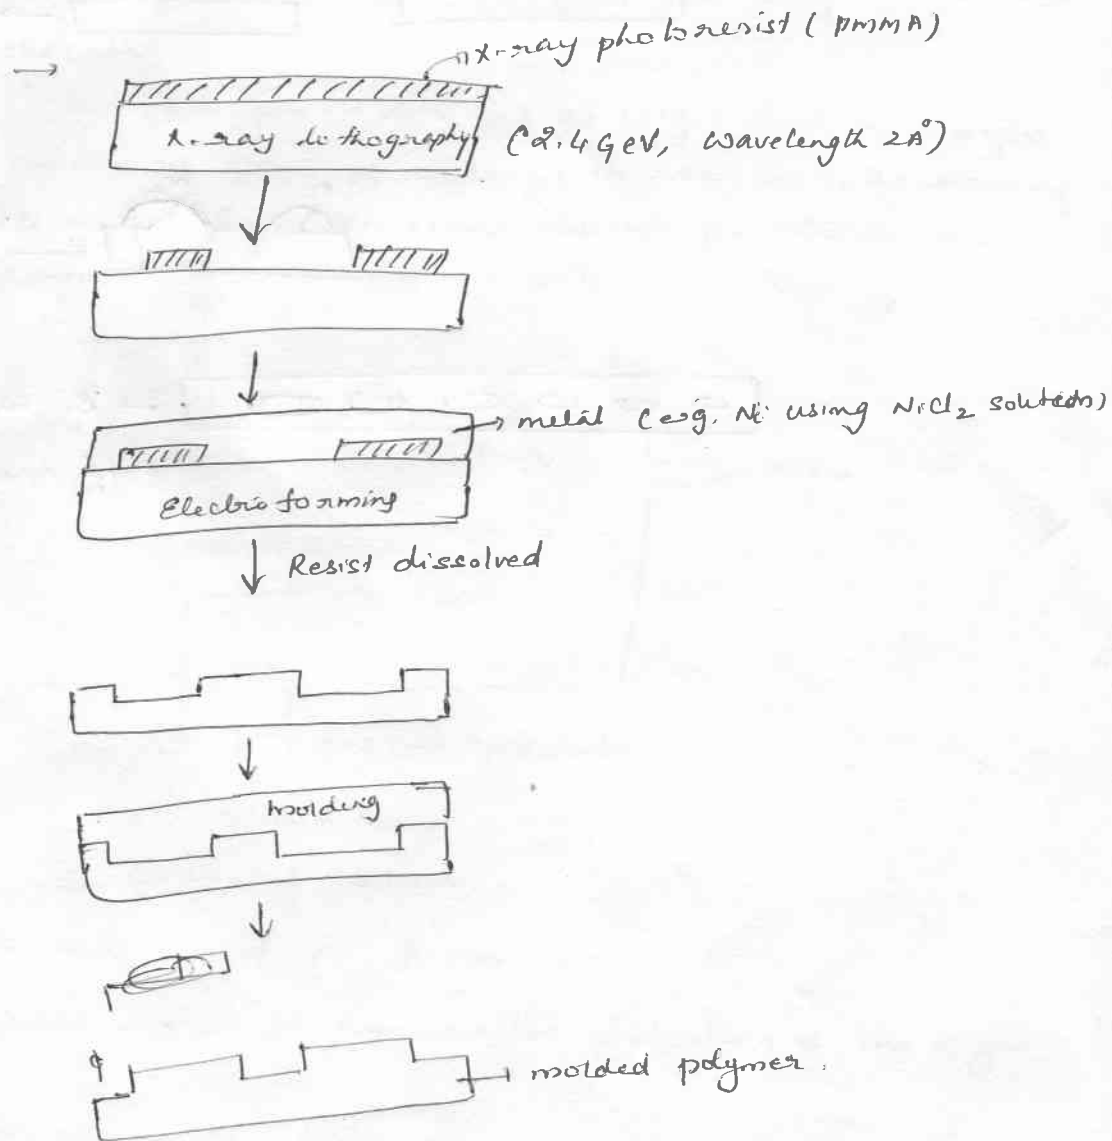 X-ray photoresist (PMMA)
X-ray lithography (2.4 GeV, wavelength 2A°)
metal (e.g. Ni using NiCl2 solution)
Electro forming
Resist dissolved
Molding
molded polymer.